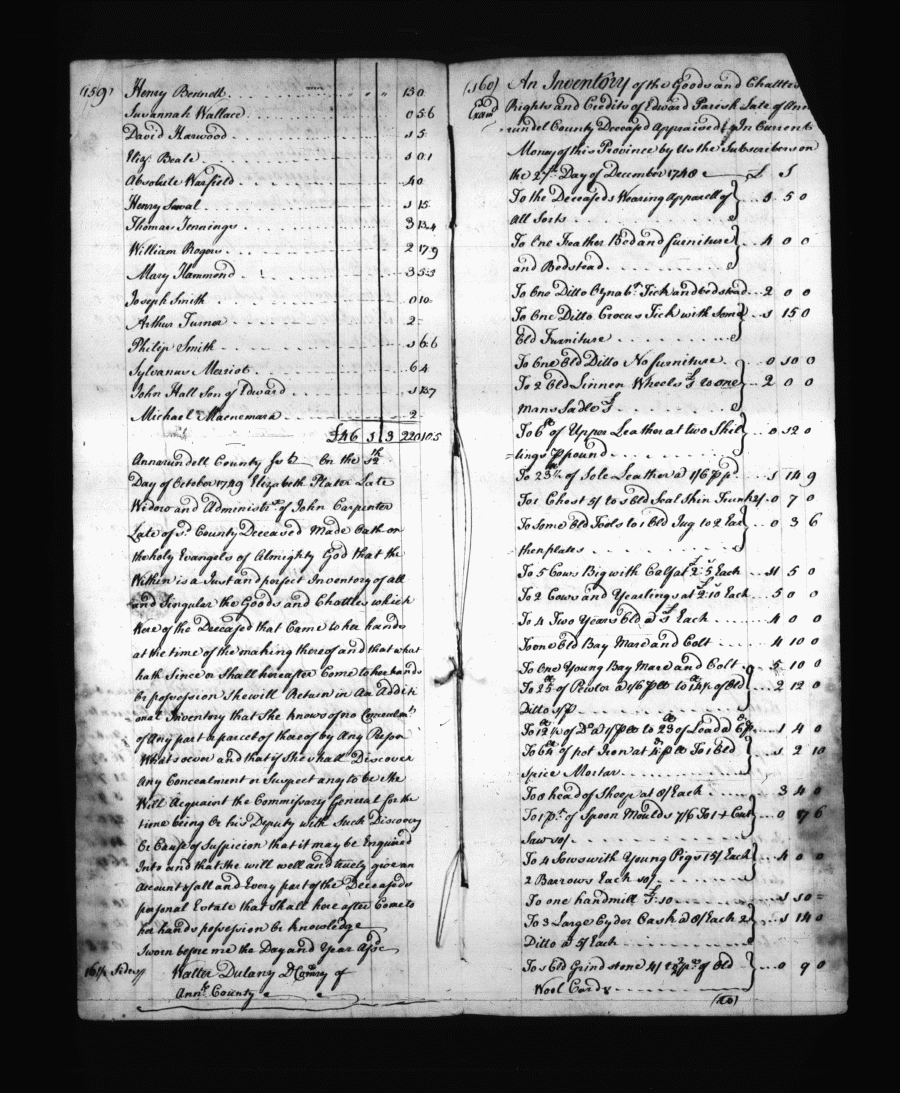 (159)
Henry Bennett . . . . 1 5 0
Susannah Wallace . . . . 0 5 6
David Harwood . . . . 1 5
Eliz. Beale . . . . 1 0 1
Absolute Warfield . . . . 4 0
Henry Sewal . . . . 1 15
Thomas Jennings . . . . 3 13 4
William Rogers . . . . 2 17 9
Mary Hammond . . . . 3 5 3
Joseph Smith . . . . 0 10
Arthur Turner . . . . 2
Philip Smith . . . . 1 6 6
Sylvanus Marriot . . . . 6 4
John Hall Son of Edward . . . . 1 13 7
Michael Macnemara . . . . 2
£46 1 3 220 10 5
Annarundell County ss On the 12th
Day of October 1749 Elizabeth Plater Late
Widow and Administrx of John Carpenter
Late of sd County Deceased Made Oath on
the holy Evangels of Almighty God that the
Within is a Just and perfect Inventory of all
and Singular the Goods and Chattles which
Were of the Deceased that Came to her hands
at the time of the making thereof and that what
hath Since or Shall hereafter Come to her hands
or possession She will Return in An Additi
onal Inventory that She knows of no Concealmt
of Any part or parcel of thereof by Any Person
Whatsoever and that if She shall Discover
Any Concealment or Suspect any to be She
Will Acquaint the Commissary General for the
time being Or his Deputy with Such Discovery
Or Cause of Suspicion that it may be Enquired
Into and that She will well and truely give an
account of all and Every part of the Deceaseds
personal Estate that Shall hereafter Come to
her hands possession Or knowledge
Sworn before me the Day and Year Afsd
Walter Dulany D Comry of
Anna County
(160) An Inventory of the Goods and Chattles
Exam Rights and Credits of Edward Parish Late of Ann
rundel County Deceased Appraised In Current
Money of this Province by Us the Subscribers on
the 27th Day of December 1748 £ S
To the Deceaseds Wearing Apparell of
All Sorts . . . . 3 5 0
To One Feather Bed and furniture
and Bedstead . . . . 4 0 0
To One Ditto Tick and bedstead . . 2 0 0
To One Ditto Crocus Tick with Some
Old Furniture . . . . 1 15 0
To One Old Ditto No furniture . . 0 10 0
To 2 Old Linnen Wheels to one
Mans Sadle . . . . 2 0 0
To 6 lb of Upper Leather at two Shil
=lings P pound . . . . 0 12 0
To 23½ of Sole Leather a 1/6 P . . 1 14 9
To 1 Chest 5/ to 1 Old Seal Skin Trunk 2/ . 0 7 0
To Some Old Tools to 1 Old Jug to 2 Ear
thenplates . . . . 0 3 6
To 5 Cows Big with Calf at 2:5 Each . . 11 5 0
To 2 Cows and Yearlings at 2:10 Each . . 5 0 0
To 4 Two Years Old a 1 Each . . 4 0 0
To one Old Bay Mare and Colt . . 4 10 0
To One Young Bay Mare and Colt . . 5 10 0
To 25 of Pewter a 1/6 P to 14½ of Old
Ditto 1/ P . . . . 2 12 0
To 12 of Do a 1/ P to 23 of Lead a 6 P . . 1 4 0
To 64 of pot Iron at 4 P To 1 Old
Spice Mortar . . . . 1 2 10
To 8 head of Sheep at 8/ Each . . 3 4 0
To 1 pr of Spoon Moulds 7/6 To 1 + Cut
Saw 10/ . . . . 0 17 6
To 4 Sows with Young Pigs 15/ Each
2 Barrows Each 10/ . . . . 4 0 0
To one handmill £1:10 . . . . 1 10
To 3 Large Cyder Cask a 8/ Each 2
Ditto a 5/ Each . . . . 1 14 0
To 1 Old Grind stone 4/ pr of Old
Wool Cards . . . . 0 9 0